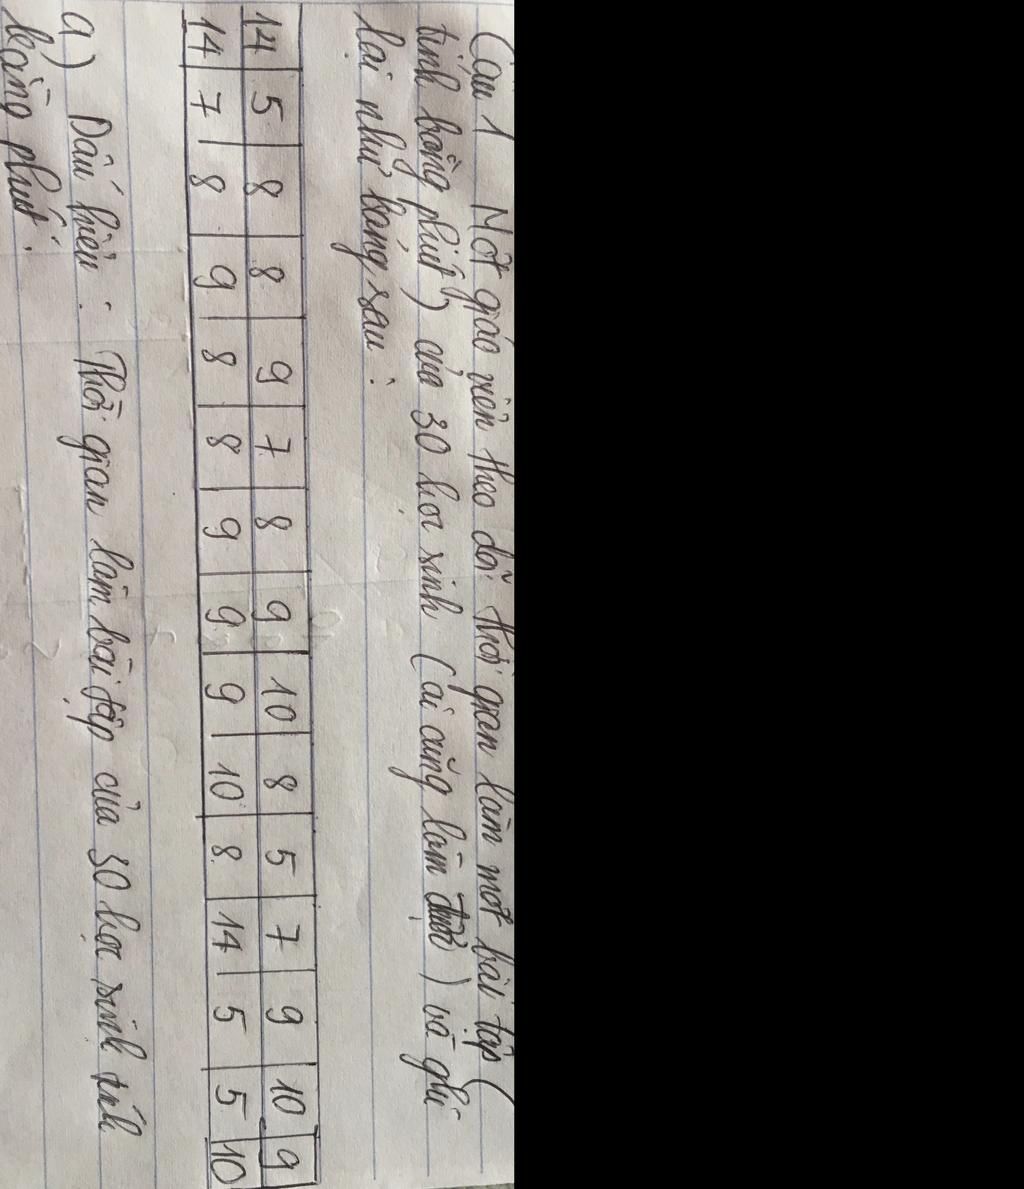 Câu 1 Một giáo viên theo dõi thời gian làm một bài tập (
tính bằng phút) của 30 học sinh (ai cũng làm được) và ghi
lại như bảng sau:
14 5 8 8 9 7 8 9 10 8 5 7 9 10 9
14 7 8 9 8 8 9 9 9 10 8 14 5 5 10
a) Dấu hiệu: Thời gian làm bài tập của 30 học sinh tính
bằng phút.